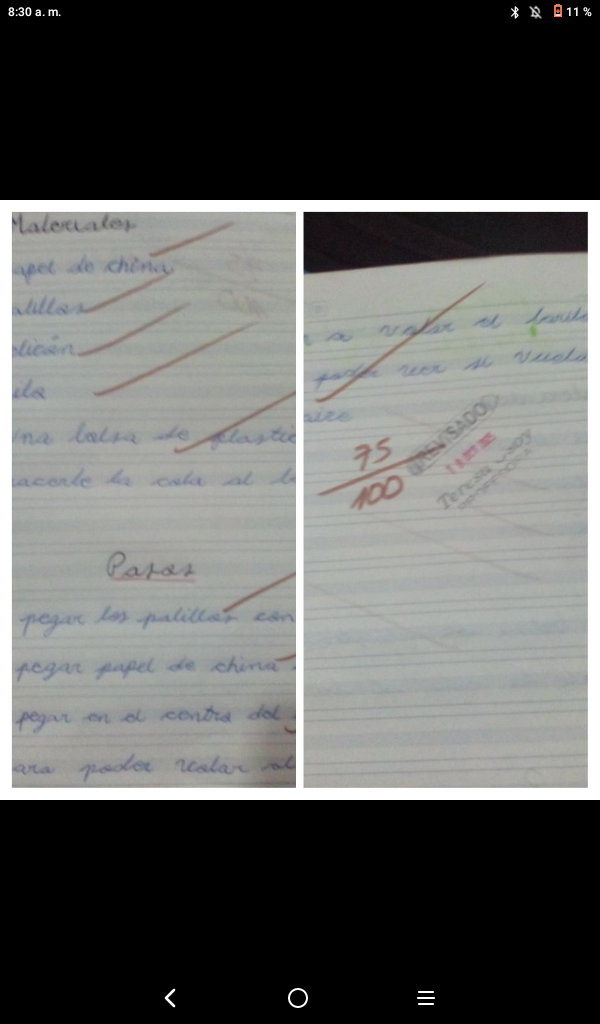 8:30 a. m.
11 %
Materiales
apel de china
alillos
olicón
ila
na bolsa de plastic
acerle la cola al
Pasos
pegar los palillos con
pegar papel de china
pegar en el contra del
ara poder
a volar el
poder ver si vuela
aire
75
100
REVISADO
Teresa